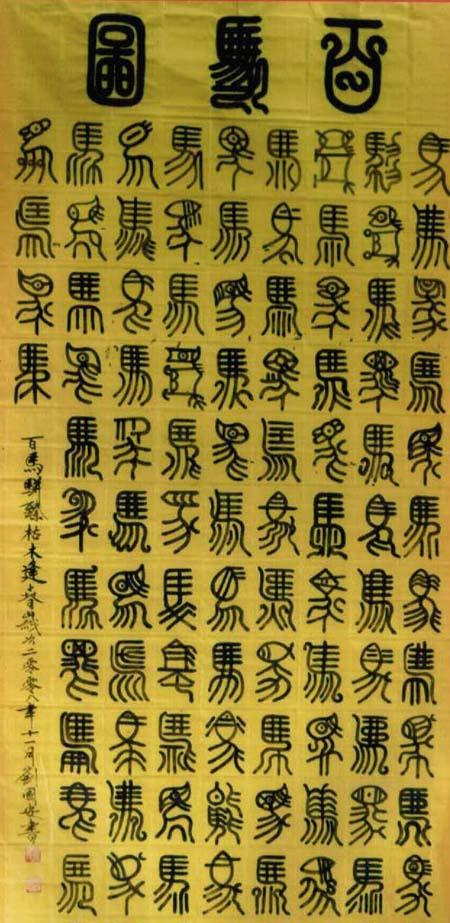 百馬圖
馬馬馬馬馬馬馬馬馬馬馬
馬馬馬馬馬馬馬馬馬馬馬
馬馬馬馬馬馬馬馬馬馬馬
馬馬馬馬馬馬馬馬馬馬馬
馬馬馬馬馬馬馬馬馬馬馬
馬馬馬馬馬馬馬馬馬馬馬
馬馬馬馬馬馬馬馬馬馬馬
馬馬馬馬馬馬馬馬馬馬馬
馬馬馬馬
百馬枯木逢春歲次二零零八年十一月劉國書